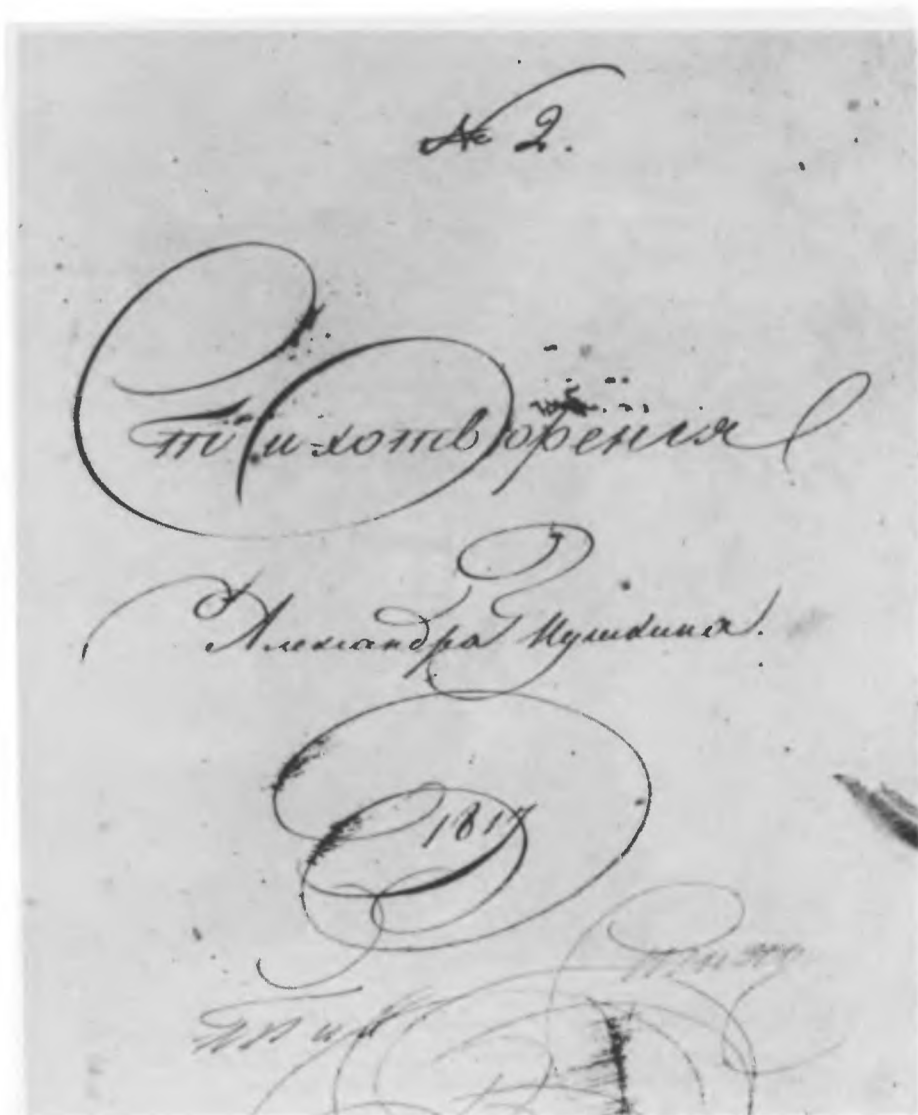 № 2.
Стихотворенія
Александра Пушкина.
1817